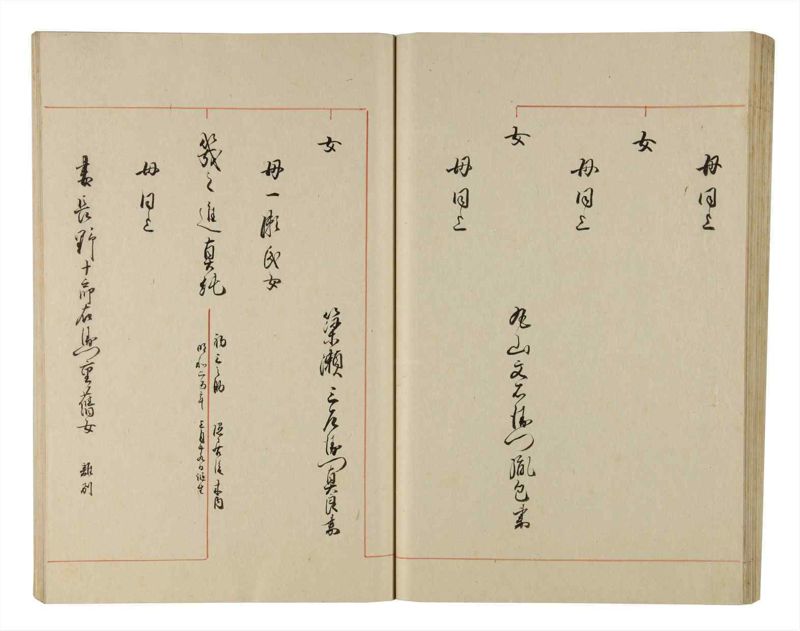 母同上
女
母同上
女
丸山文右衛門胤包妻
母同上
女
築瀬三左衛門真良妻
母一瀬氏女
幾之進真純
母同上
妻長野十郎右衛門重舊女
離別